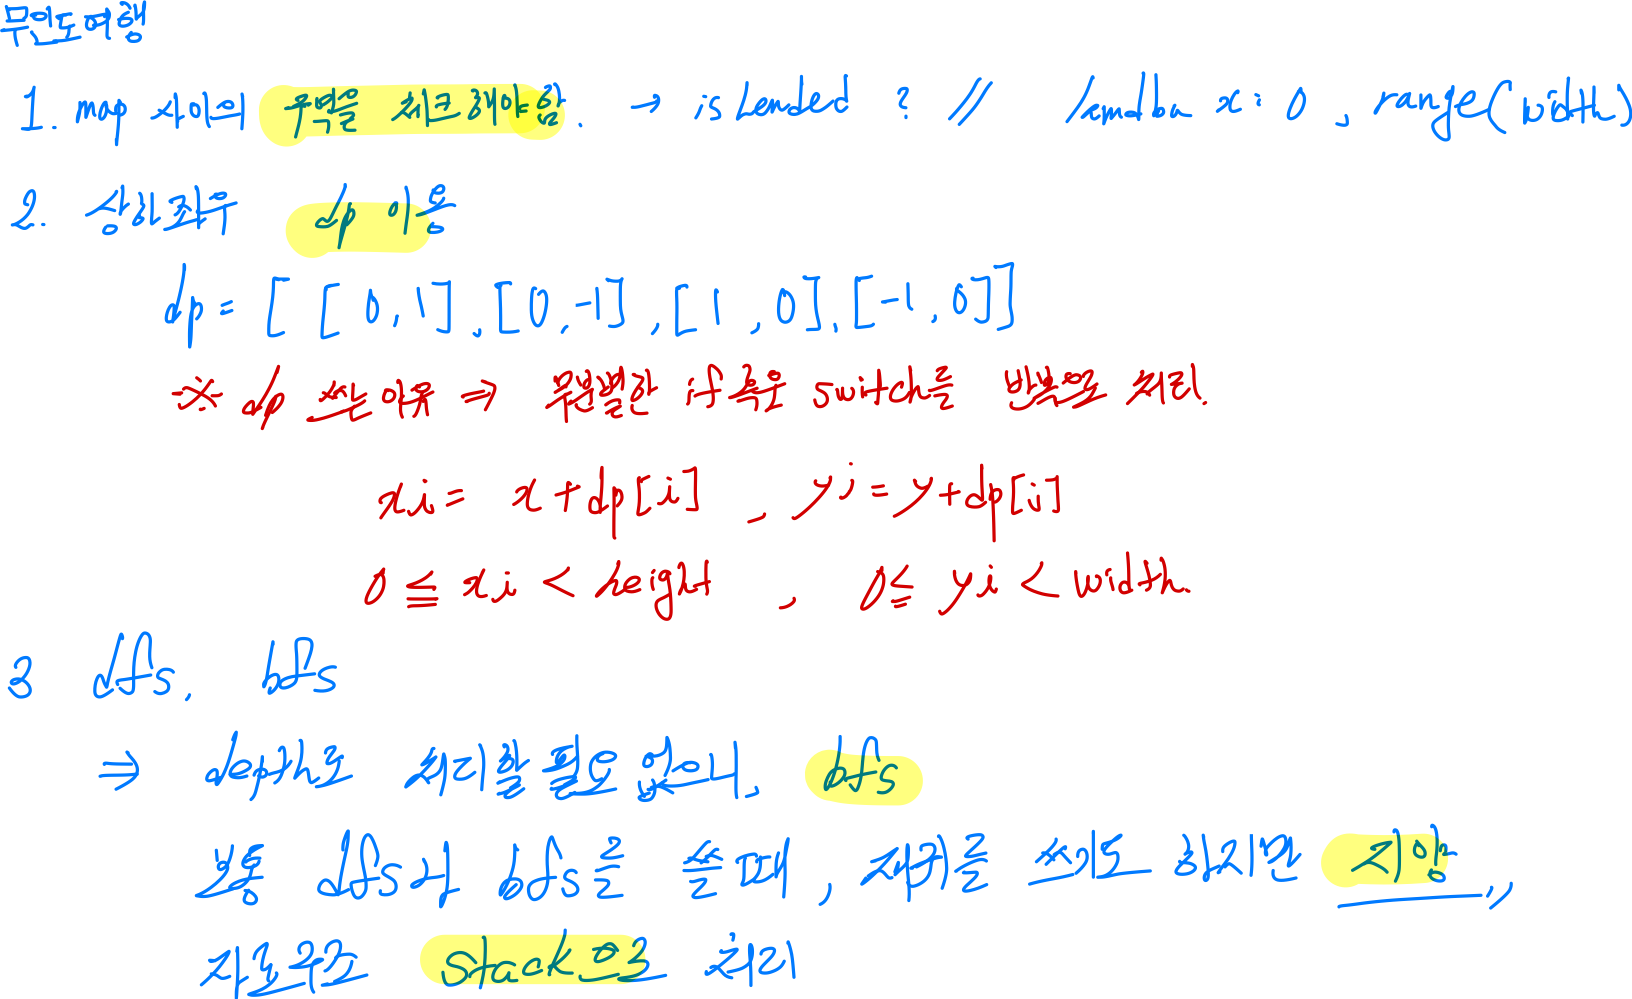 무인도여행
1. map 사이의 구역을 체크해야함. → is Landed ? // lamdba x: 0 , range(width)
2. 상하좌우 dp 이용
dp = [ [ 0, 1], [0, -1], [1, 0], [-1, 0]]
※ dp 쓰는이유 ⇒ 무분별한 if 혹은 switch를 반복으로 처리.
xi = x + dp[i] , yi = y + dp[i]
0 ≦ xi < height , 0 ≦ yi < width.
3 dfs, bfs
⇒ depth로 처리할 필요 없으니, bfs
보통 dfs랑 bfs를 쓸 때, 재귀를 쓰기도 하지만 지양,,
자료구조 stack으로 처리